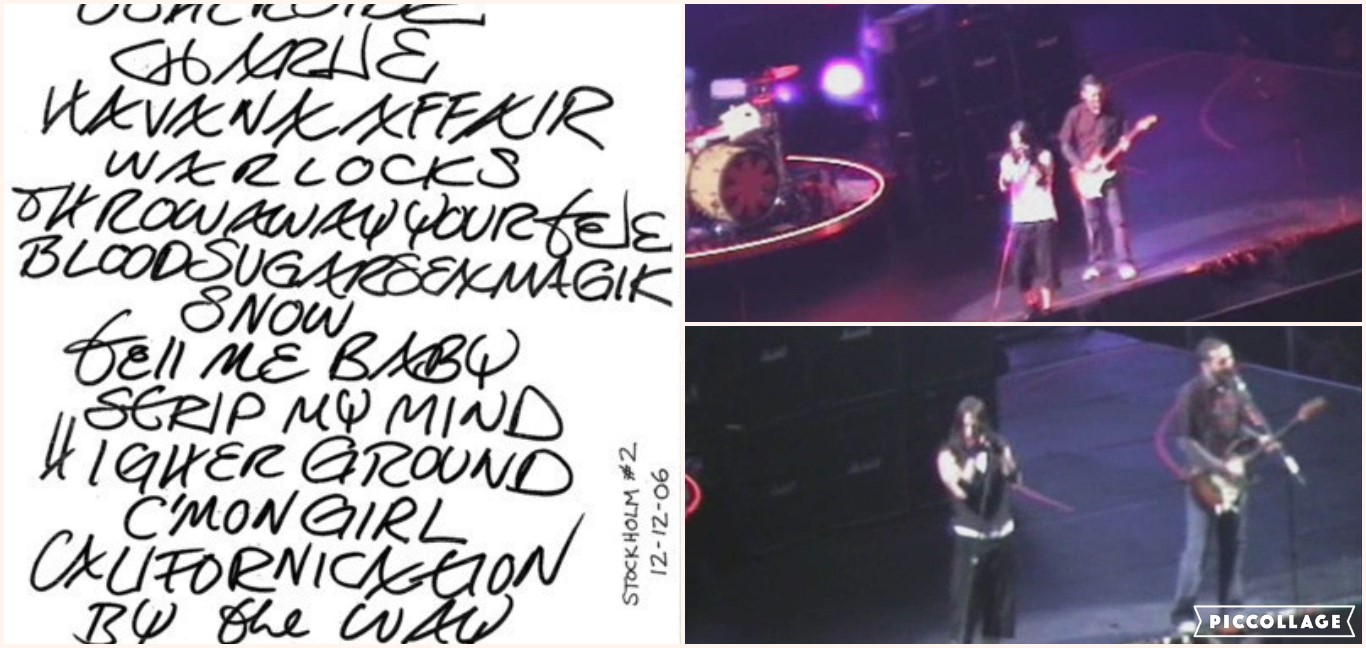 CHARLIE
HAVANA AFFAIR
WARLOCKS
THROW AWAY YOUR TELE
BLOODSUGARSEXMAGIK
SNOW
TELL ME BABY
STRIP MY MIND
HIGHER GROUND
C'MON GIRL
CALIFORNICATION
BY the WAY
STOCKHOLM #2
12-12-06
PICCOLLAGE